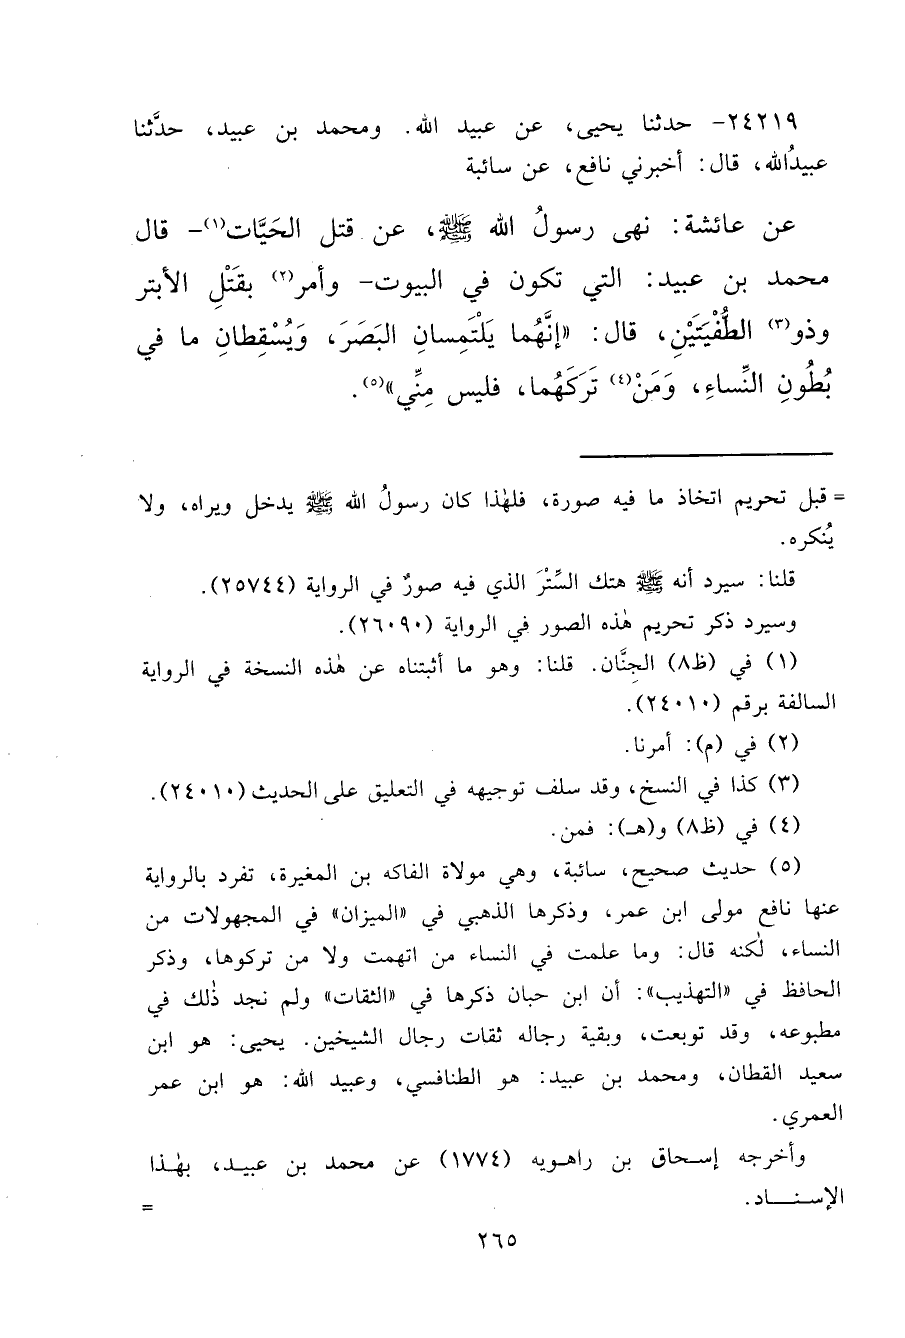 ٢٤٢١٩- حدثنا يحيى، عن عبيد الله. ومحمد بن عبيد، حدَّثنا
عبيدُالله، قال: أخبرني نافع، عن سائبة
عن عائشة: نهى رسولُ الله ﷺ، عن قتل الحَيَّات(١)- قال
محمد بن عبيد: التي تكون في البيوت- وأمر(٢) بقَتْلِ الأبتر
وذو(٣) الطُّفْيَتَيْنِ، قال: «إنَّهُما يَلْتَمِسانِ البَصَرَ، وَيُسْقِطانِ ما في
بُطُونِ النِّساءِ، وَمَنْ(٤) تَرَكَهُما، فليس مِنِّي»(٥).
= قبل تحريم اتخاذ ما فيه صورة، فلهٰذا كان رسولُ الله ﷺ يدخل ويراه، ولا
يُنكره.
قلنا: سيرد أنه ﷺ هتك السِّتْرَ الذي فيه صورٌ في الرواية (٢٥٧٤٤).
وسيرد ذكر تحريم هٰذه الصور في الرواية (٢٦٠٩٠).
(١) في (ظ٨) الجِنَّان. قلنا: وهو ما أثبتناه عن هٰذه النسخة في الرواية
السالفة برقم (٢٤٠١٠).
(٢) في (م): أمرنا.
(٣) كذا في النسخ، وقد سلف توجيهه في التعليق على الحديث (٢٤٠١٠).
(٤) في (ظ٨) و(هـ): فمن.
(٥) حديث صحيح، سائبة، وهي مولاة الفاكه بن المغيرة، تفرد بالرواية
عنها نافع مولى ابن عمر، وذكرها الذهبي في «الميزان» في المجهولات من
النساء، لٰكنه قال: وما علمت في النساء من اتهمت ولا من تركوها، وذكر
الحافظ في «التهذيب»: أن ابن حبان ذكرها في «الثقات» ولم نجد ذٰلك في
مطبوعه، وقد توبعت، وبقية رجاله ثقات رجال الشيخين. يحيى: هو ابن
سعيد القطان، ومحمد بن عبيد: هو الطنافسي، وعبيد الله: هو ابن عمر
العمري.
وأخرجه إسحاق بن راهويه (١٧٧٤) عن محمد بن عبيد، بهٰذا
الإسنـــاد. =
٢٦٥